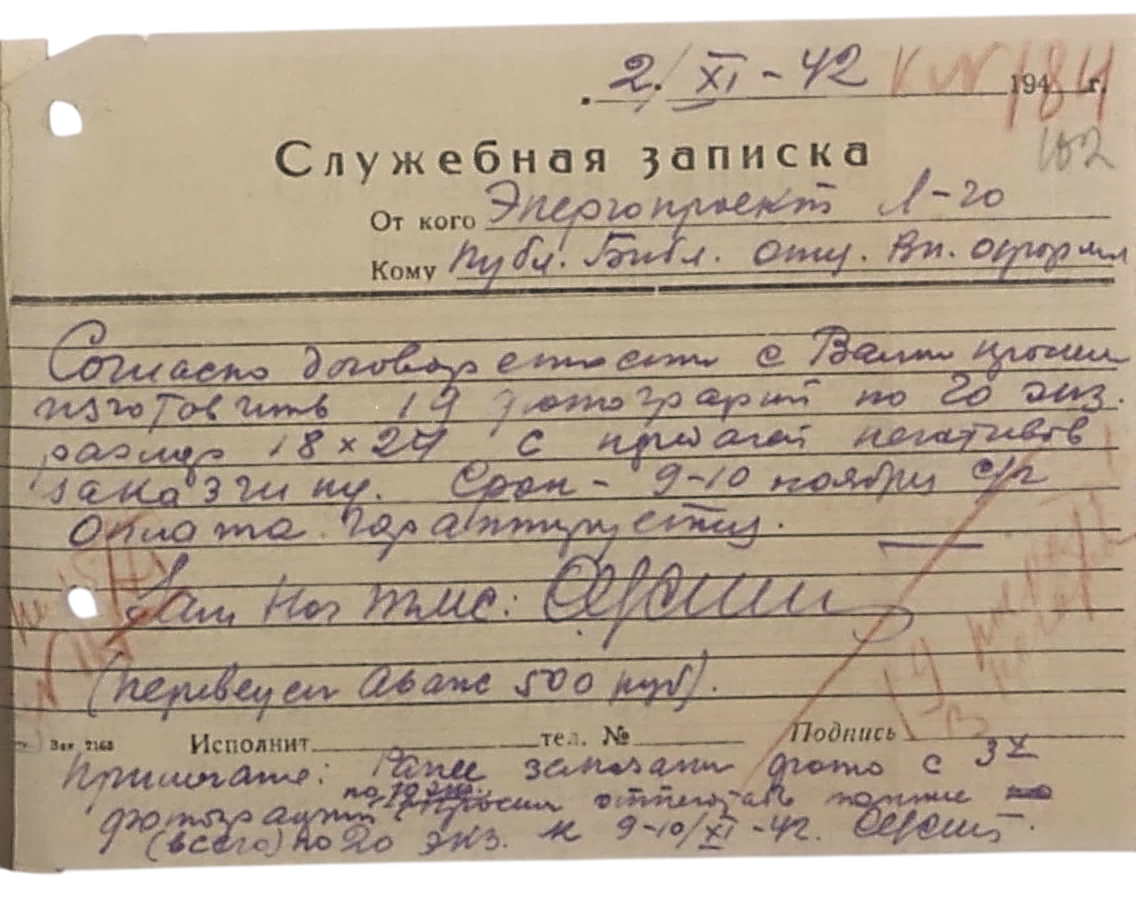 2/XI-42 К № 184
194 г.
102
Служебная записка
От кого Энергопроект Л-го
Кому Публ. Библ. отд. Вн. оформл
Согласно договоренности с Вами просим
изготовить 19 фотографий по 20 экз.
размер 18×24 с придачей негативов
заказчику. Срок - 9-10 ноября с/г
Оплата гарантируется.
Зам Нач
(переведен аванс 500 руб).
Зак 7168 Исполнит. тел. № Подпись
Примечание: Ранее заказан фото с 3х
по 10 экз.
фотографий просим отпечатать
(всего) по 20 экз. к 9-10/XI-42.